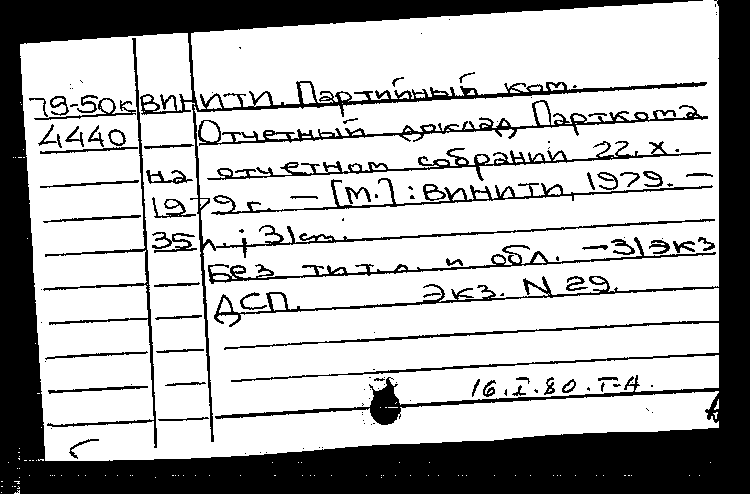 79-50к ВИНИТИ. Партийный ком.
4440 Отчетный доклад Парткома
на отчетном собрании 22.X.
1979 г. — [М.] : ВИНИТИ, 1979. —
35 л. ; 31 см.
Без тит. л. и обл. — 31 экз
ДСП. Экз. N 29.
16.I.80. Т-А.